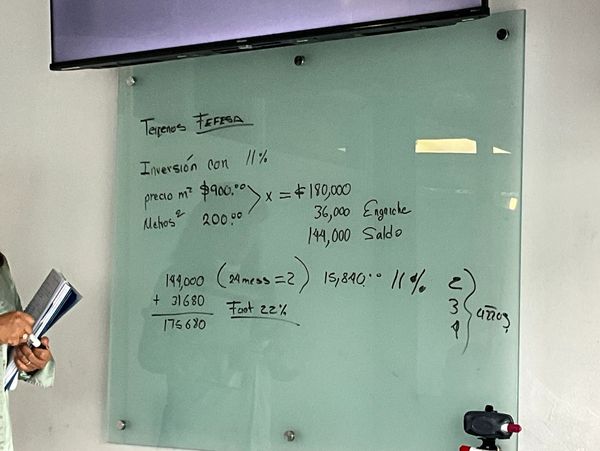 Terrenos FEFESA
Inversión con 11%
precio m² $900.00 > x = $180,000
Metros² 200.00
36,000 Enganche
144,000 Saldo
144,000 (24 mess = 2) 15,840.00 11% 2
+ 31680 Fact 22% 3 años
175680 4